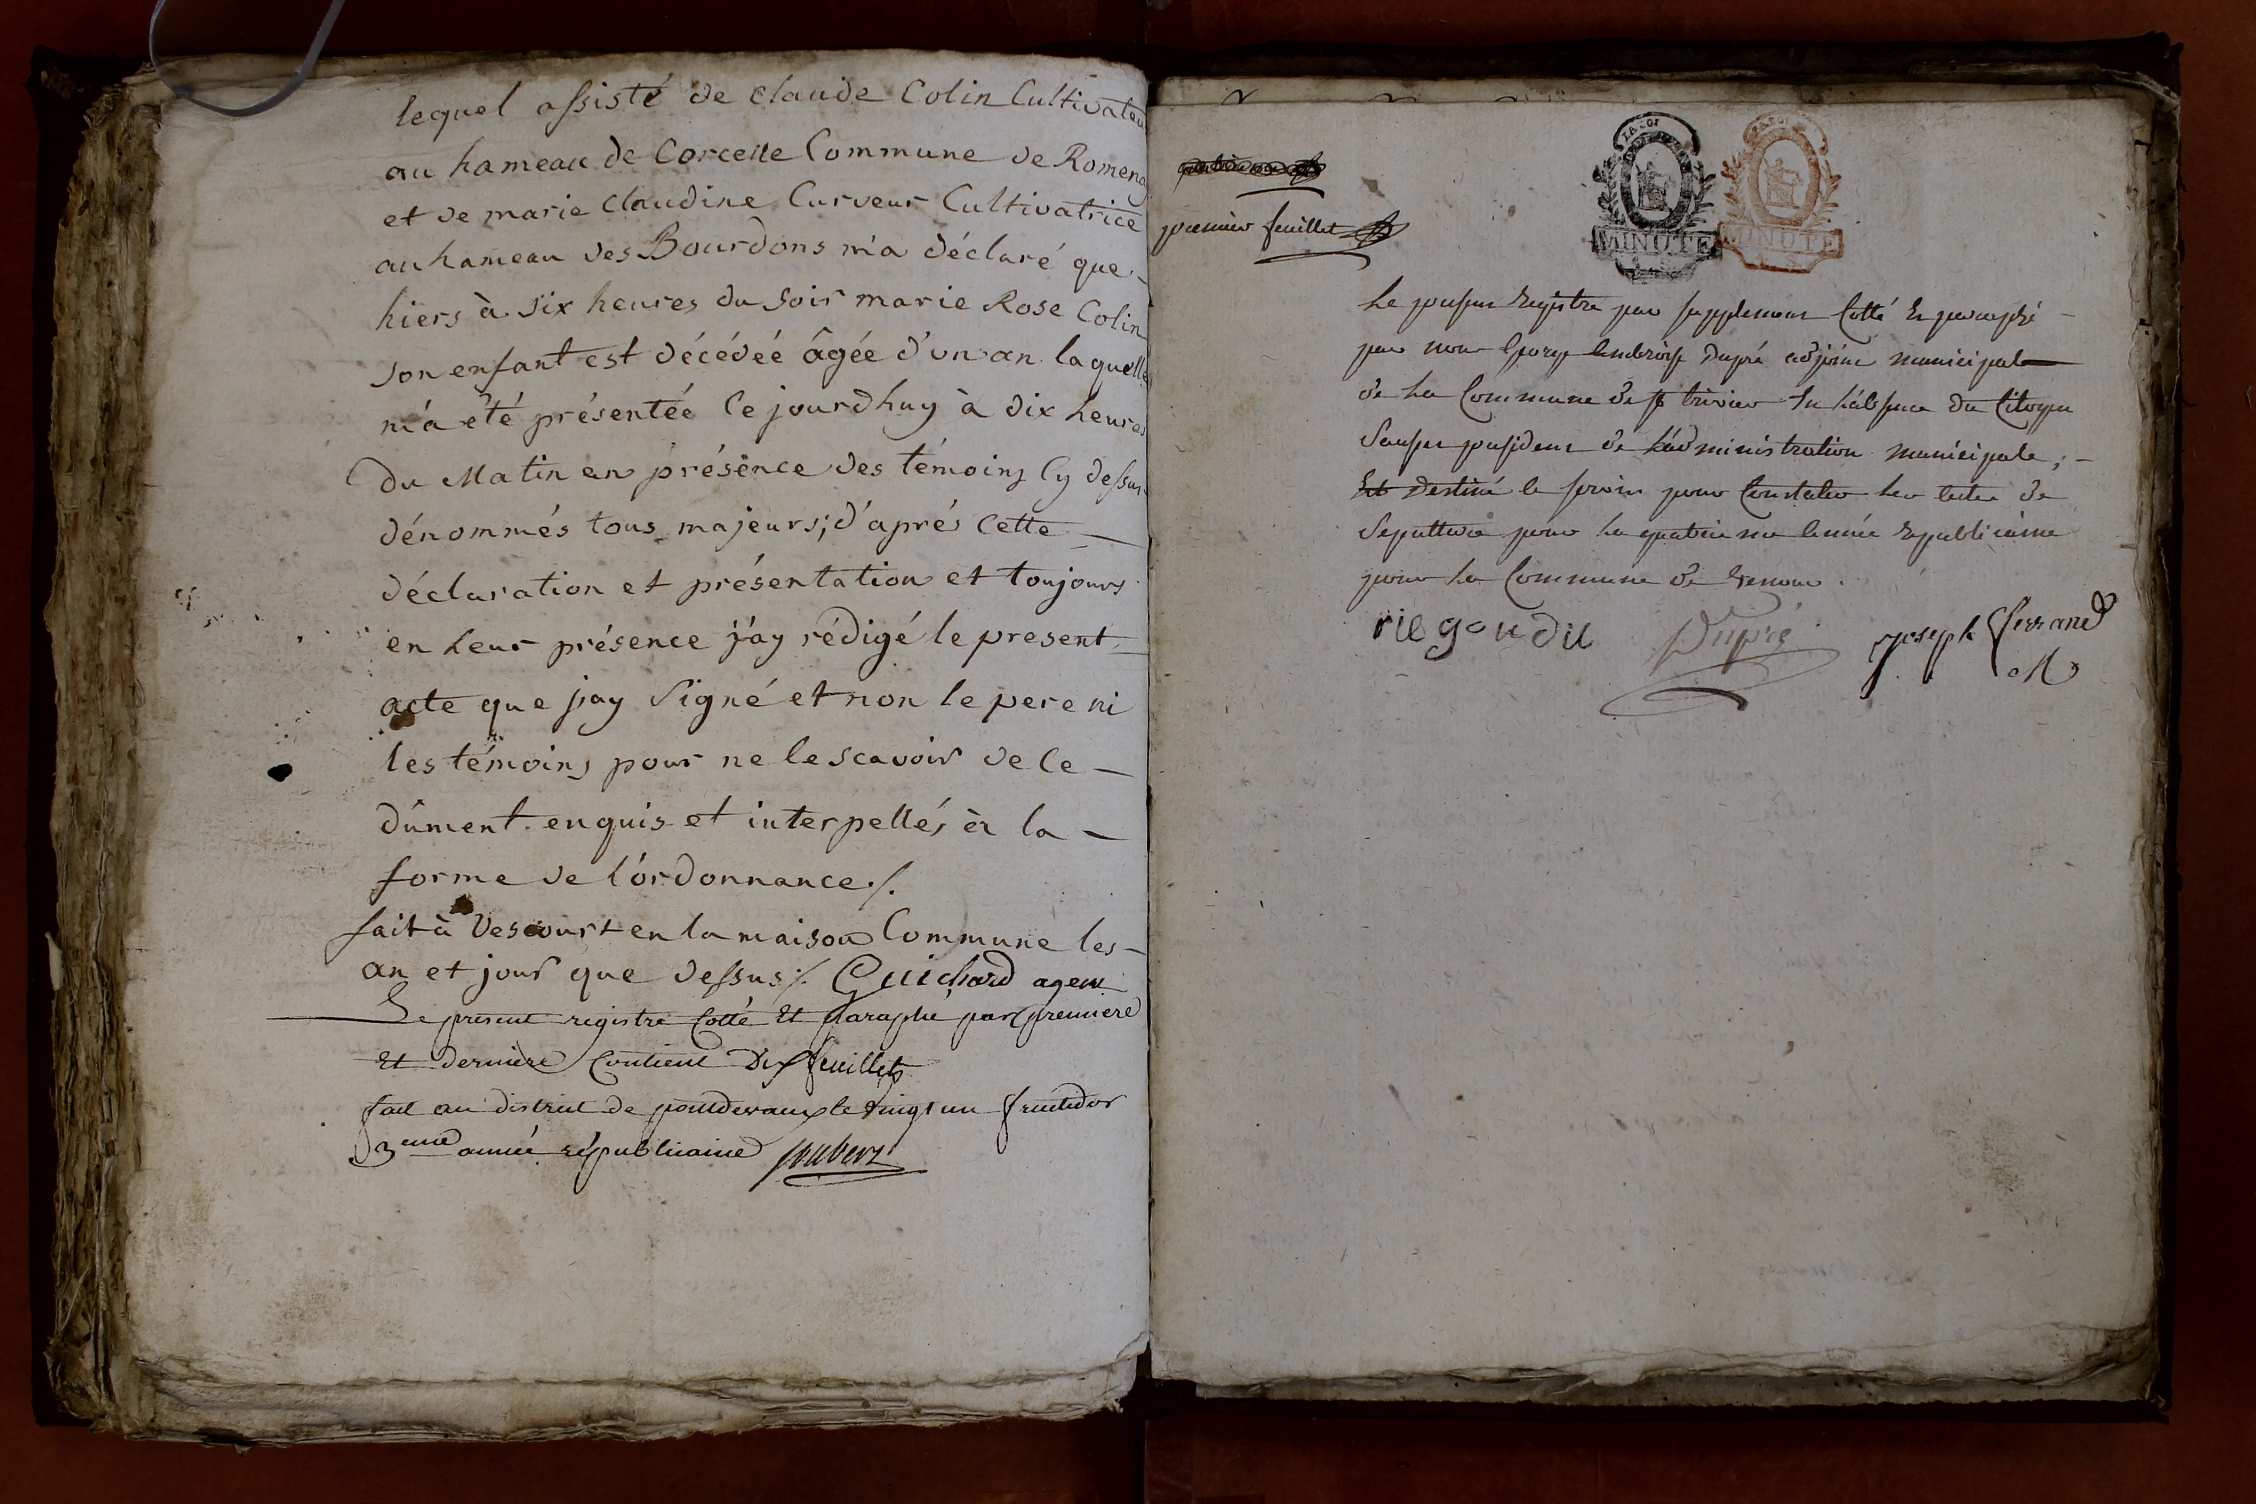 lequel assisté de claude Colin Cultivateur
au hameau de Corcelle Commune de Romena
et de marie claudine Curveur Cultivatrice
au hameau des Bourdons m'a déclaré que
hiers à six heures du soir marie Rose Colin
son enfant est décédeé âgée d'un an laquelle
m'a été présentée Ce jourdhuy à dix heures
du Matin en présence des témoins Cy dessus
dénommés tous majeurs; d'aprés Cette
déclaration et présentation et toujours
en leur présence j'ay rédigé le present
acte que j'ay signé et non le pere ni
les témoins pour ne le scavoir de Ce
dûment enquis et interpellés à la
forme de l'ordonnance ./.
fait à Vescourt en la maison Commune les
an et jour que dessus ./. Guichard agent
Le present registre Cotté Et paraphé par premiere
Et derniere Contient Dix feuillets
fait au district de pontdevaux le vingt un fructidor
3eme année républicaine Joubert
premier feuillet
LA LOI
MINUTE
LA LOI
MINUTE
Le present Registre par supplement Cotté Et paraphé
par nous George Ambroise Dupré adjoint municipal
de La Commune de St trivier En L'absence du Citoyen
president de L'administration municipale;
Est Destiné a servir pour Constater Les actes de
Sepulture pour La quatrieme année Republicaine
pour La Commune de
riegoudu Dupré joseph ferrand